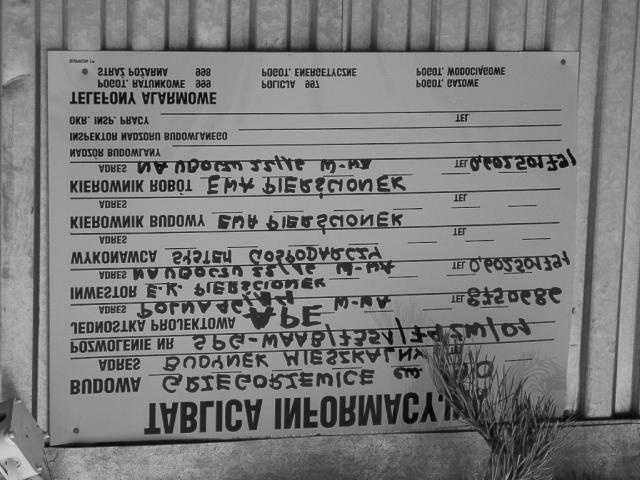 TABLICA INFORMACYJ
BUDOWA GRZEGORZEWICE
ADRES BUDYNEK MIESZKALNY
POZWOLENIE NR SPG-WAAB/7351/74ZW/01
JEDNOSTKA PROJEKTOWA APE
POLNA W-WA TEL 8750686
INWESTOR E.K. PIERŚCIONEK
ADRES NA UBOCZU 22/16 W-WA TEL 0,602501791
WYKONAWCA SYSTEM GOSPODARCZY
ADRES TEL
KIEROWNIK BUDOWY EWA PIERŚCIONEK
ADRES TEL
KIEROWNIK ROBÓT EWA PIERŚCIONEK
ADRES NA UBOCZU 22/16 W-WA TEL 0,602501791
NADZÓR BUDOWLANY
INSPEKTOR NADZORU BUDOWLANEGO
OKR. INSP. PRACY TEL
TELEFONY ALARMOWE
POGOT. RATUNKOWE 999 POLICJA 997 POGOT. GAZOWE
STRAŻ POŻARNA 998 POGOT. ENERGETYCZNE POGOT. WODOCIĄGOWE